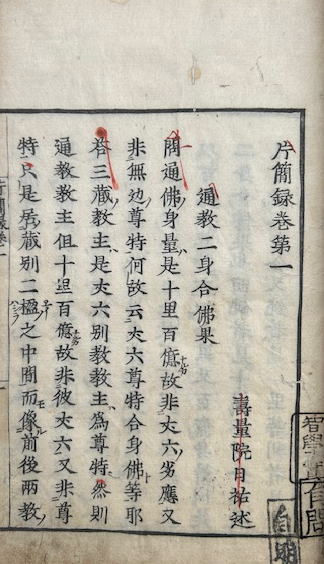 片簡録卷第一
壽量院日祐述
通教二身合佛果
問通佛身量是十里百億故非丈六劣應又
非無辺尊特何故云丈六尊特合身佛等耶
答三藏教主是丈六別教教主爲尊特然則
通教教主但十里百億故非彼丈六又非尊
特只是居藏別二楹之中間而像前後兩教